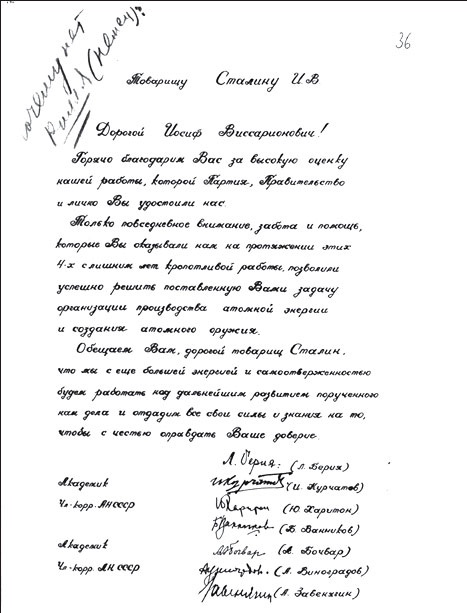 почему нет
Риля (немец)?
36
Товарищу Сталину И В
Дорогой Иосиф Виссарионович!
Горячо благодарим Вас за высокую оценку
нашей работы, которой Партия, Правительство
и лично Вы удостоили нас.
Только повседневное внимание, забота и помощь,
которые Вы оказывали нам на протяжении этих
4-х с лишним лет кропотливой работы, позволили
успешно решить поставленную Вами задачу
организации производства атомной энергии
и создания атомного оружия.
Обещаем Вам, дорогой товарищ Сталин,
что мы с еще большей энергией и самоотверженностью
будем работать над дальнейшим развитием порученного
нам дела и отдадим все свои силы и знания на то,
чтобы с честью оправдать Ваше доверие.
Л. Берия: (Л. Берия)
Академик ИКурчатов (И. Курчатов)
Чл.-корр. АН СССР Ю Харитон (Ю Харитон)
БВанников (Б Ванников)
Академик АБочвар (А. Бочвар)
Чл.-корр. АН СССР АВиноградов (А. Виноградов)
Завенягин (А. Завенягин)